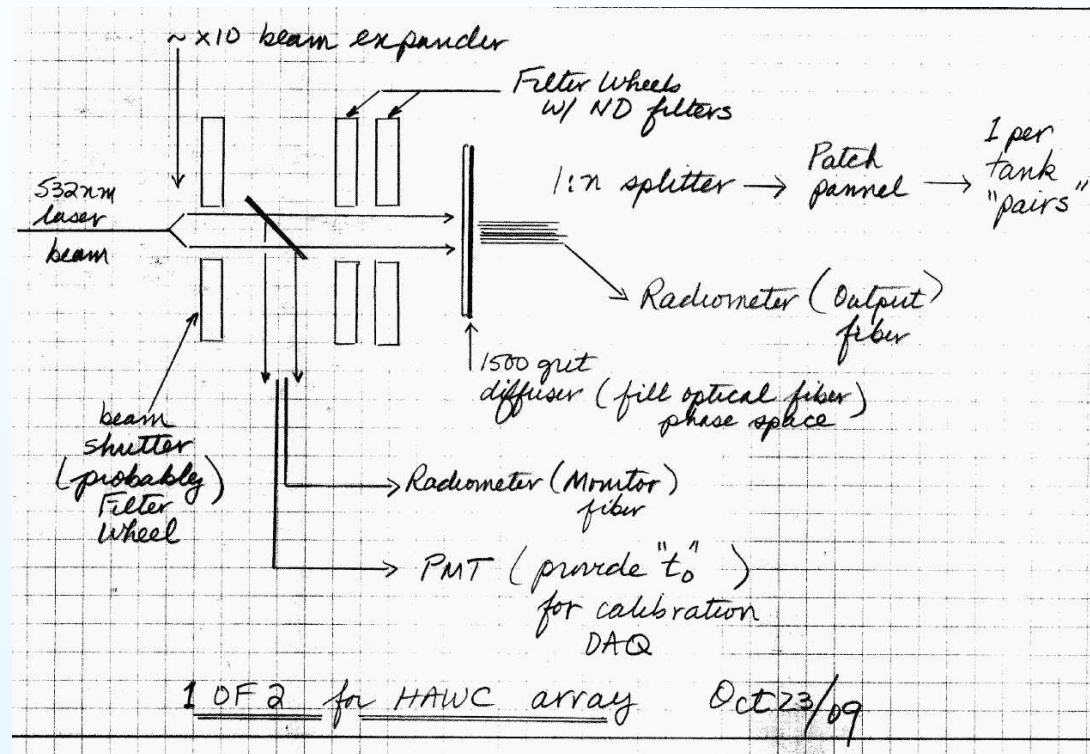 ~ x10 beam expander
Filter Wheels
w/ ND filters
532nm
laser
beam
1:n splitter → Patch
pannel → 1 per
tank
"pairs"
Radiometer (Output)
fiber
1500 grit
diffuser (fill optical fiber)
phase space
beam
shutter
(probably)
Filter
Wheel
Radiometer (Monitor)
fiber
PMT (provide "t0")
for calibration
DAQ
1 OF 2 for HAWC array Oct 23/09